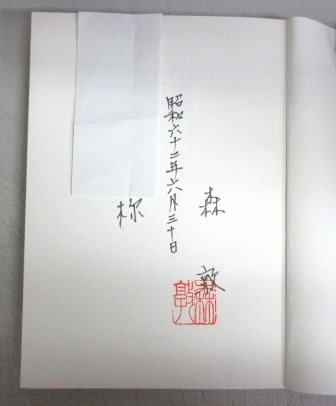 森 敦
昭和六十二年六月三十日
様
森敦